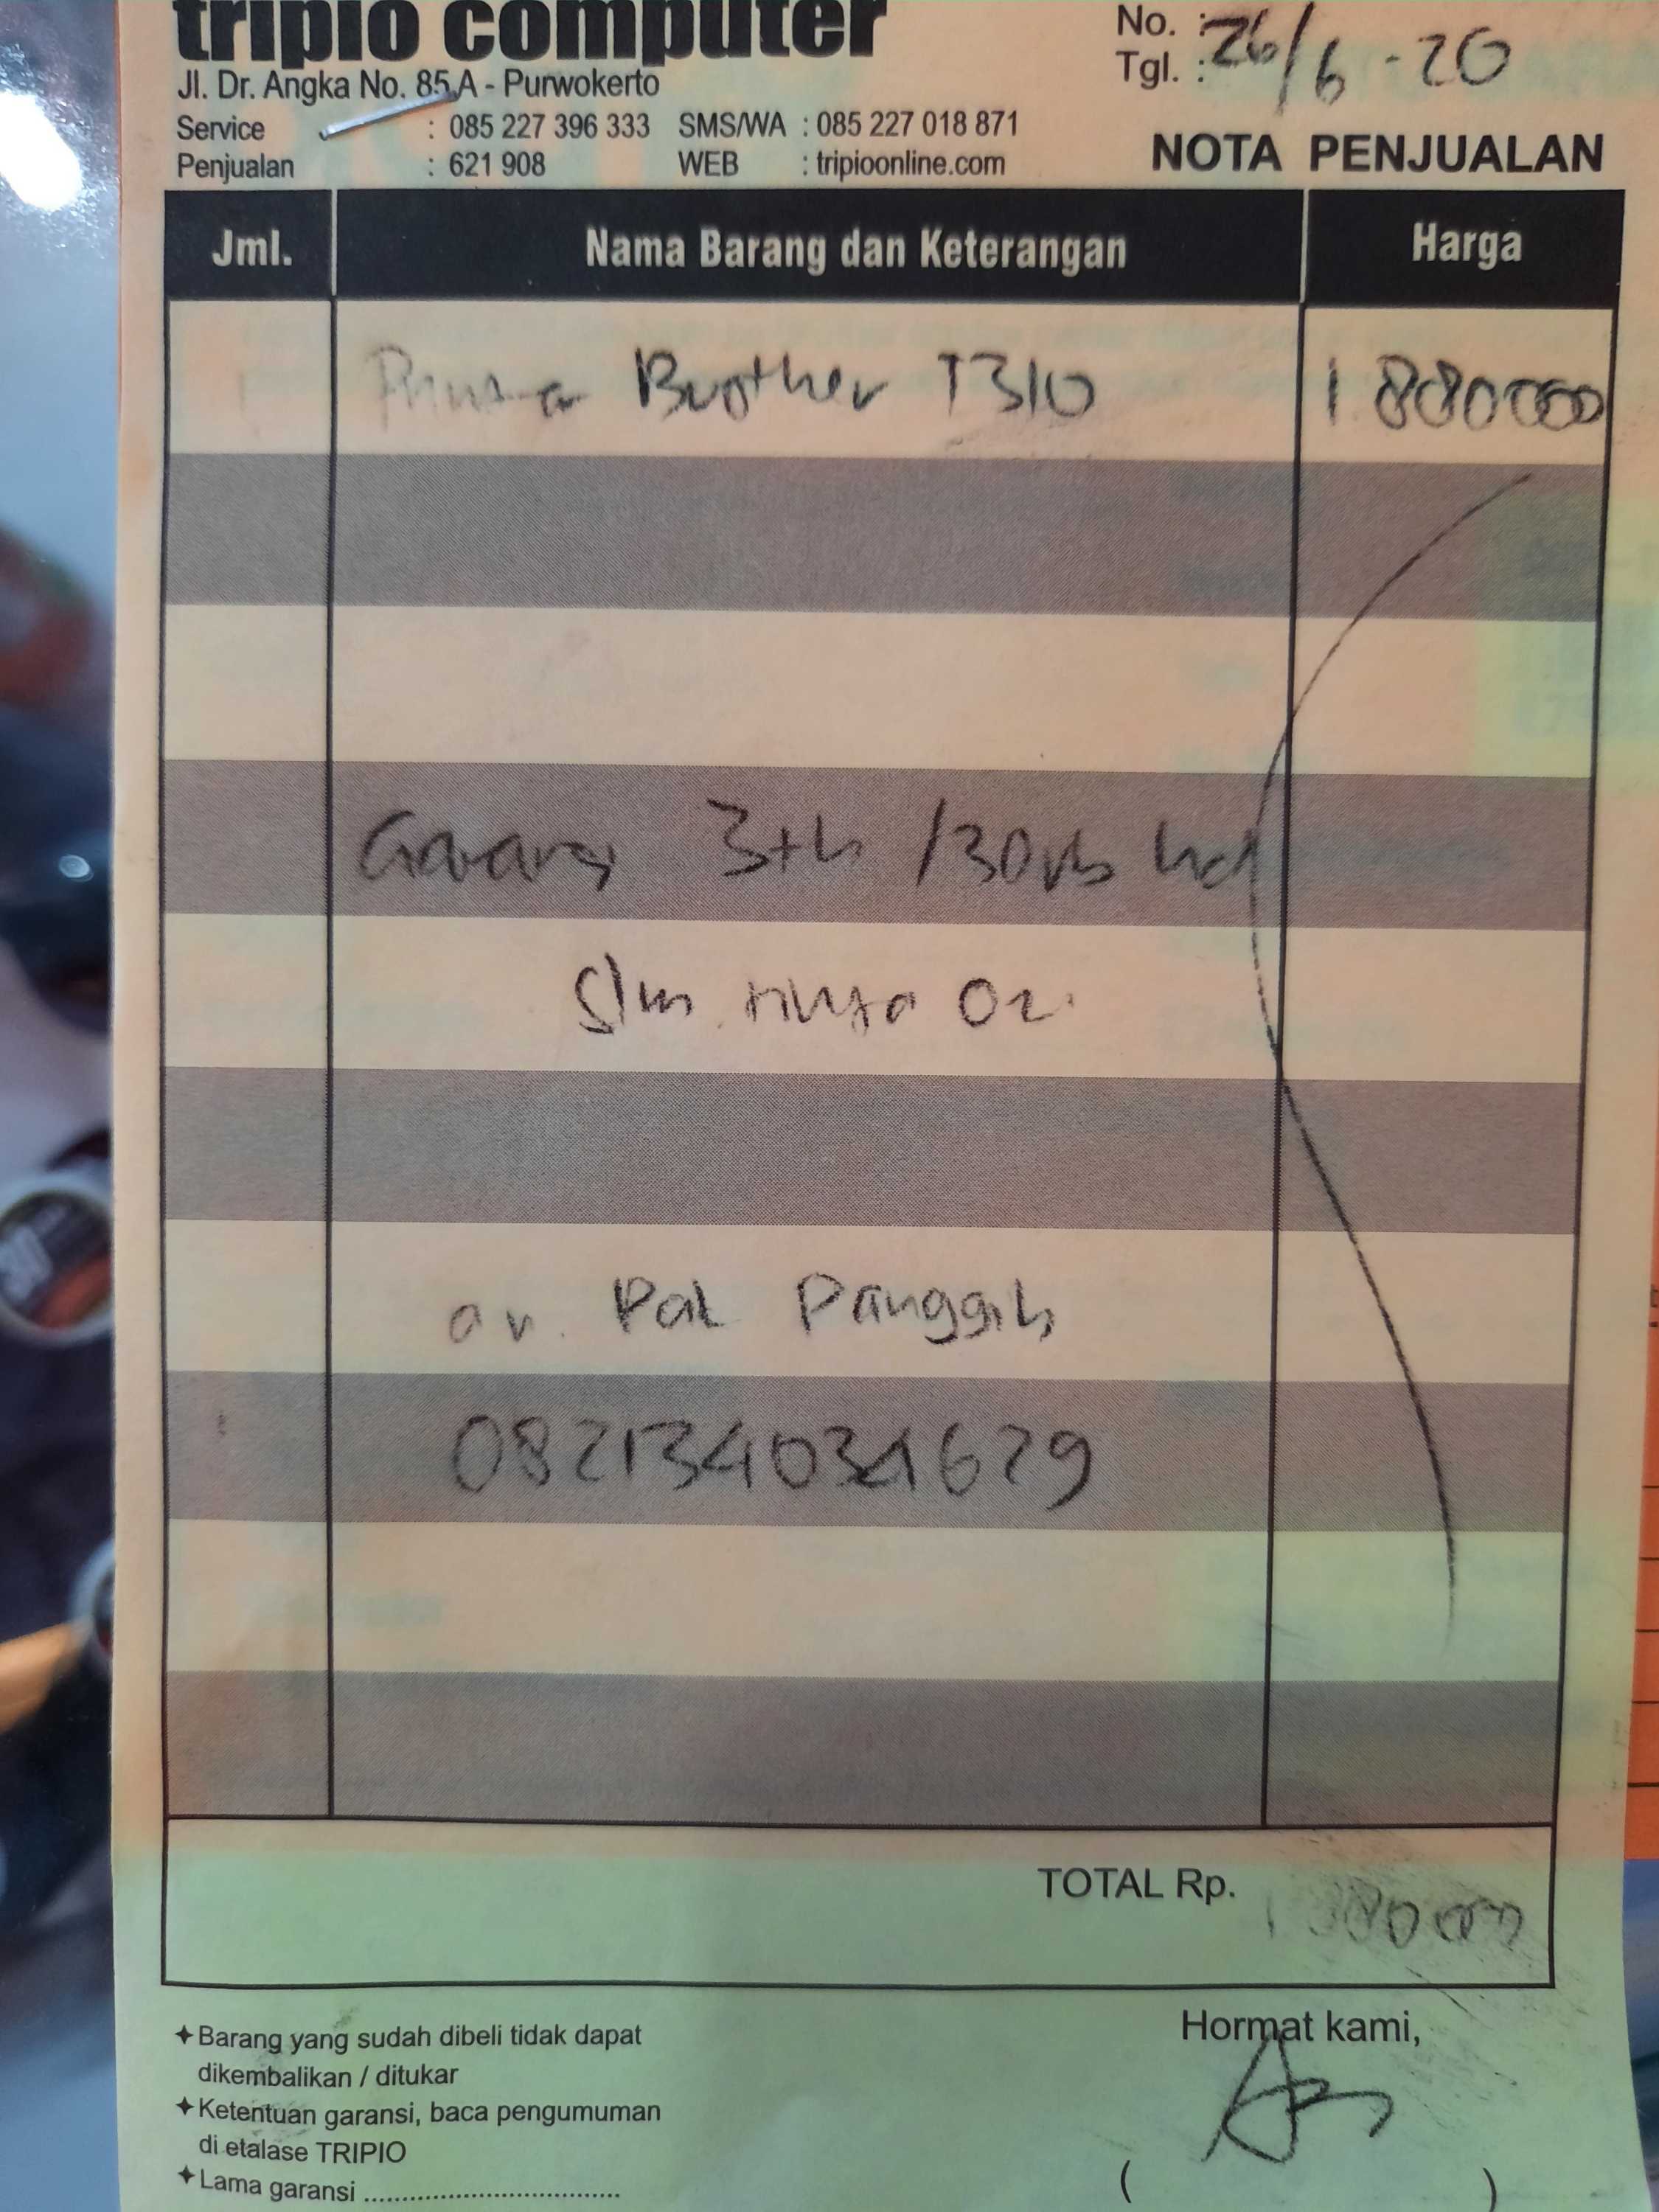 tripio computer
Jl. Dr. Angka No. 85 A - Purwokerto
Service : 085 227 396 333 SMS/WA : 085 227 018 871
Penjualan : 621 908 WEB : tripioonline.com
No. :
Tgl. : 26/6-20
NOTA PENJUALAN
Jml. Nama Barang dan Keterangan Harga
Brother T310 1.880000
Garansi 3th /30rb hal
Slm tinta Ori
an. Pak Panggih
082134034629
TOTAL Rp.
Hormat kami,
( )
✦ Barang yang sudah dibeli tidak dapat
dikembalikan / ditukar
✦ Ketentuan garansi, baca pengumuman
di etalase TRIPIO
✦ Lama garansi ....................................